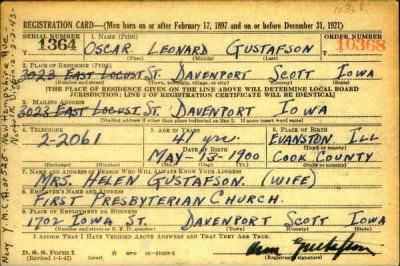 REGISTRATION CARD—(Men born on or after February 17, 1897 and on or before December 31, 1921)
SERIAL NUMBER 1. NAME (Print) ORDER NUMBER
1364 OSCAR LEONARD GUSTAFSON T 10368
(First) (Middle) (Last)
2. PLACE OF RESIDENCE (Print)
3023 EAST LOCUST ST. DAVENPORT SCOTT IOWA
(Number and street) (Town, township, village, or city) (County) (State)
[THE PLACE OF RESIDENCE GIVEN ON THE LINE ABOVE WILL DETERMINE LOCAL BOARD
JURISDICTION; LINE 2 OF REGISTRATION CERTIFICATE WILL BE IDENTICAL]
3. MAILING ADDRESS
3023 EAST LOCUST ST. DAVENPORT IOWA
[Mailing address if other than place indicated on line 2. If same insert word same]
4. TELEPHONE 5. AGE IN YEARS 6. PLACE OF BIRTH
2-2061 41 yrs. EVANSTON ILL
DATE OF BIRTH (Town or county)
MAY-13-1900 COOK COUNTY
(Exchange) (Number) (Mo.) (Day) (Yr.) (State or country)
7. NAME AND ADDRESS OF PERSON WHO WILL ALWAYS KNOW YOUR ADDRESS
MRS. HELEN GUSTAFSON. (WIFE)
8. EMPLOYER'S NAME AND ADDRESS
FIRST PRESBYTERIAN CHURCH.
9. PLACE OF EMPLOYMENT OR BUSINESS
1702 IOWA ST. DAVENPORT SCOTT IOWA
(Number and street or R. F. D. number) (Town) (County) (State)
I AFFIRM THAT I HAVE VERIFIED ABOVE ANSWERS AND THAT THEY ARE TRUE.
D. S. S. Form 1
(Revised 1-1-42)
Gustafson
Navy Y.M.C.A. of 525 New Hampshire Ave